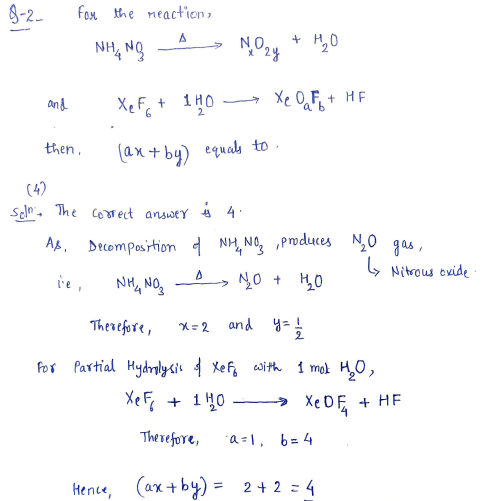 Q-2- For the reaction,
NH₄NO₃ —Δ→ NₓO₂y + H₂O
and XeF₆ + 1H₂O ⟶ XeOₐF_b + HF
then, (ax + by) equals to .
(4)
Solⁿ. The correct answer is 4.
As, Decomposition of NH₄NO₃, produces N₂O gas,
↳ Nitrous oxide.
i.e, NH₄NO₃ —Δ→ N₂O + H₂O
Therefore, x=2 and y=1/2
For Partial Hydrolysis of XeF₆ with 1 mol H₂O,
XeF₆ + 1H₂O ⟶ XeOF₄ + HF
Therefore, a=1, b=4
Hence, (ax + by) = 2 + 2 = 4